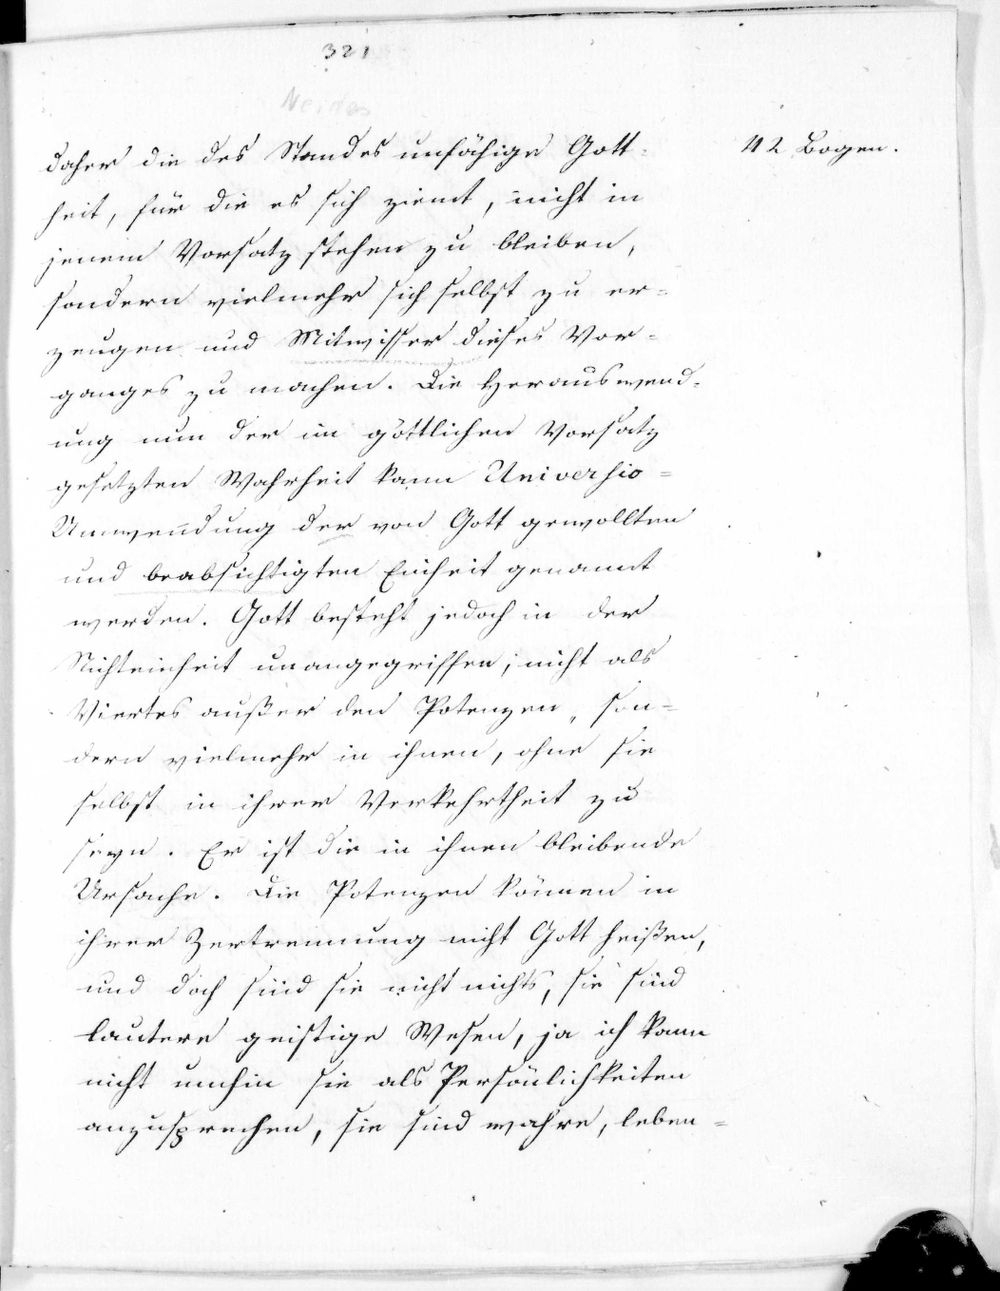 321
42 Bogen.
daher die des Standes unfähige Gott-
heit, für die es sich ziemt, nicht in
jenem Vorsatz stehen zu bleiben,
sondern vielmehr sich selbst zu er=
zeugen und Mitwisser dieses Vor=
ganges zu machen. Die Herauswend-
ung nun der im göttlichen Vorsatz
gesetzten Wahrheit kann Universio=
Umwendung der von Gott gewollten
und beabsichtigten Einheit genannt
werden. Gott besteht jedoch in der
Nichteinheit unangegriffen; nicht als
Viertes außer den Potenzen, son=
dern vielmehr in ihnen, ohne sie
selbst in ihrer Verkehrtheit zu
seyn. Er ist die in ihnen bleibende
Ursache. Die Potenzen können in
ihrer Zertrennung nicht Gott heißen,
und doch sind sie nicht nichts, sie sind
lautere geistige Wesen, ja ich kann
nicht umhin sie als Persönlichkeiten
anzusprechen, sie sind wahre, leben=